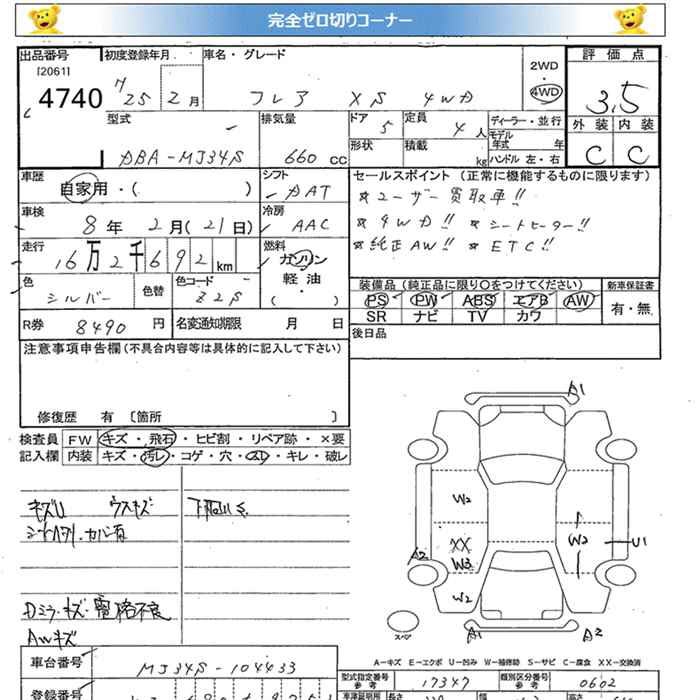 完全ゼロ切りコーナー
出品番号
[2061]
4740
初度登録年月 H25 2月
車名・グレード
フレア XS 4WD
2WD
・
4WD
評価点
3.5
外装 内装
C C
型式
DBA-MJ34S
排気量
660 cc
ドア 5
定員 4人
形状
積載 kg
ディーラー・並行
モデル年式 年
ハンドル 左・右
車歴
自家用・( )
シフト
DAT
セールスポイント (正常に機能するものに限ります)
☆ユーザー買取車!!
☆4WD!! ☆シートヒーター!!
☆純正AW!! ☆ETC!!
車検
8年 2月(21日)
冷房
AAC
走行
16万2千692km
燃料
ガソリン
軽油
( )
色
シルバー
色替
色コード
Z2S
装備品(純正品に限り○をつけてください)
PS PW ABS エアB AW
SR ナビ TV カワ
新車保証書
有・無
R券 8490円
名変通知期限 月 日
後日品
注意事項申告欄(不具合内容等は具体的に記入して下さい)
修復歴 有 〔箇所 〕
検査員記入欄
FW キズ・飛石・ヒビ割・リペア跡・×要
内装 キズ・汚レ・コゲ・穴・スレ・キレ・破レ
キズU ウスキズ 下廻りS
Dミラーキズ・電格不良
AWキズ
A1
W2
XX
W3
W2
A2
W2
U1
A1
A2
スペア
A-キズ E-エクボ U-凹み W-補修跡 S-サビ C-腐食 XX-交換済
車台番号
MJ34S-104433
型式指定番号
参考
17347
類別区分番号
参考
0602
登録番号
長さ
幅
高さ